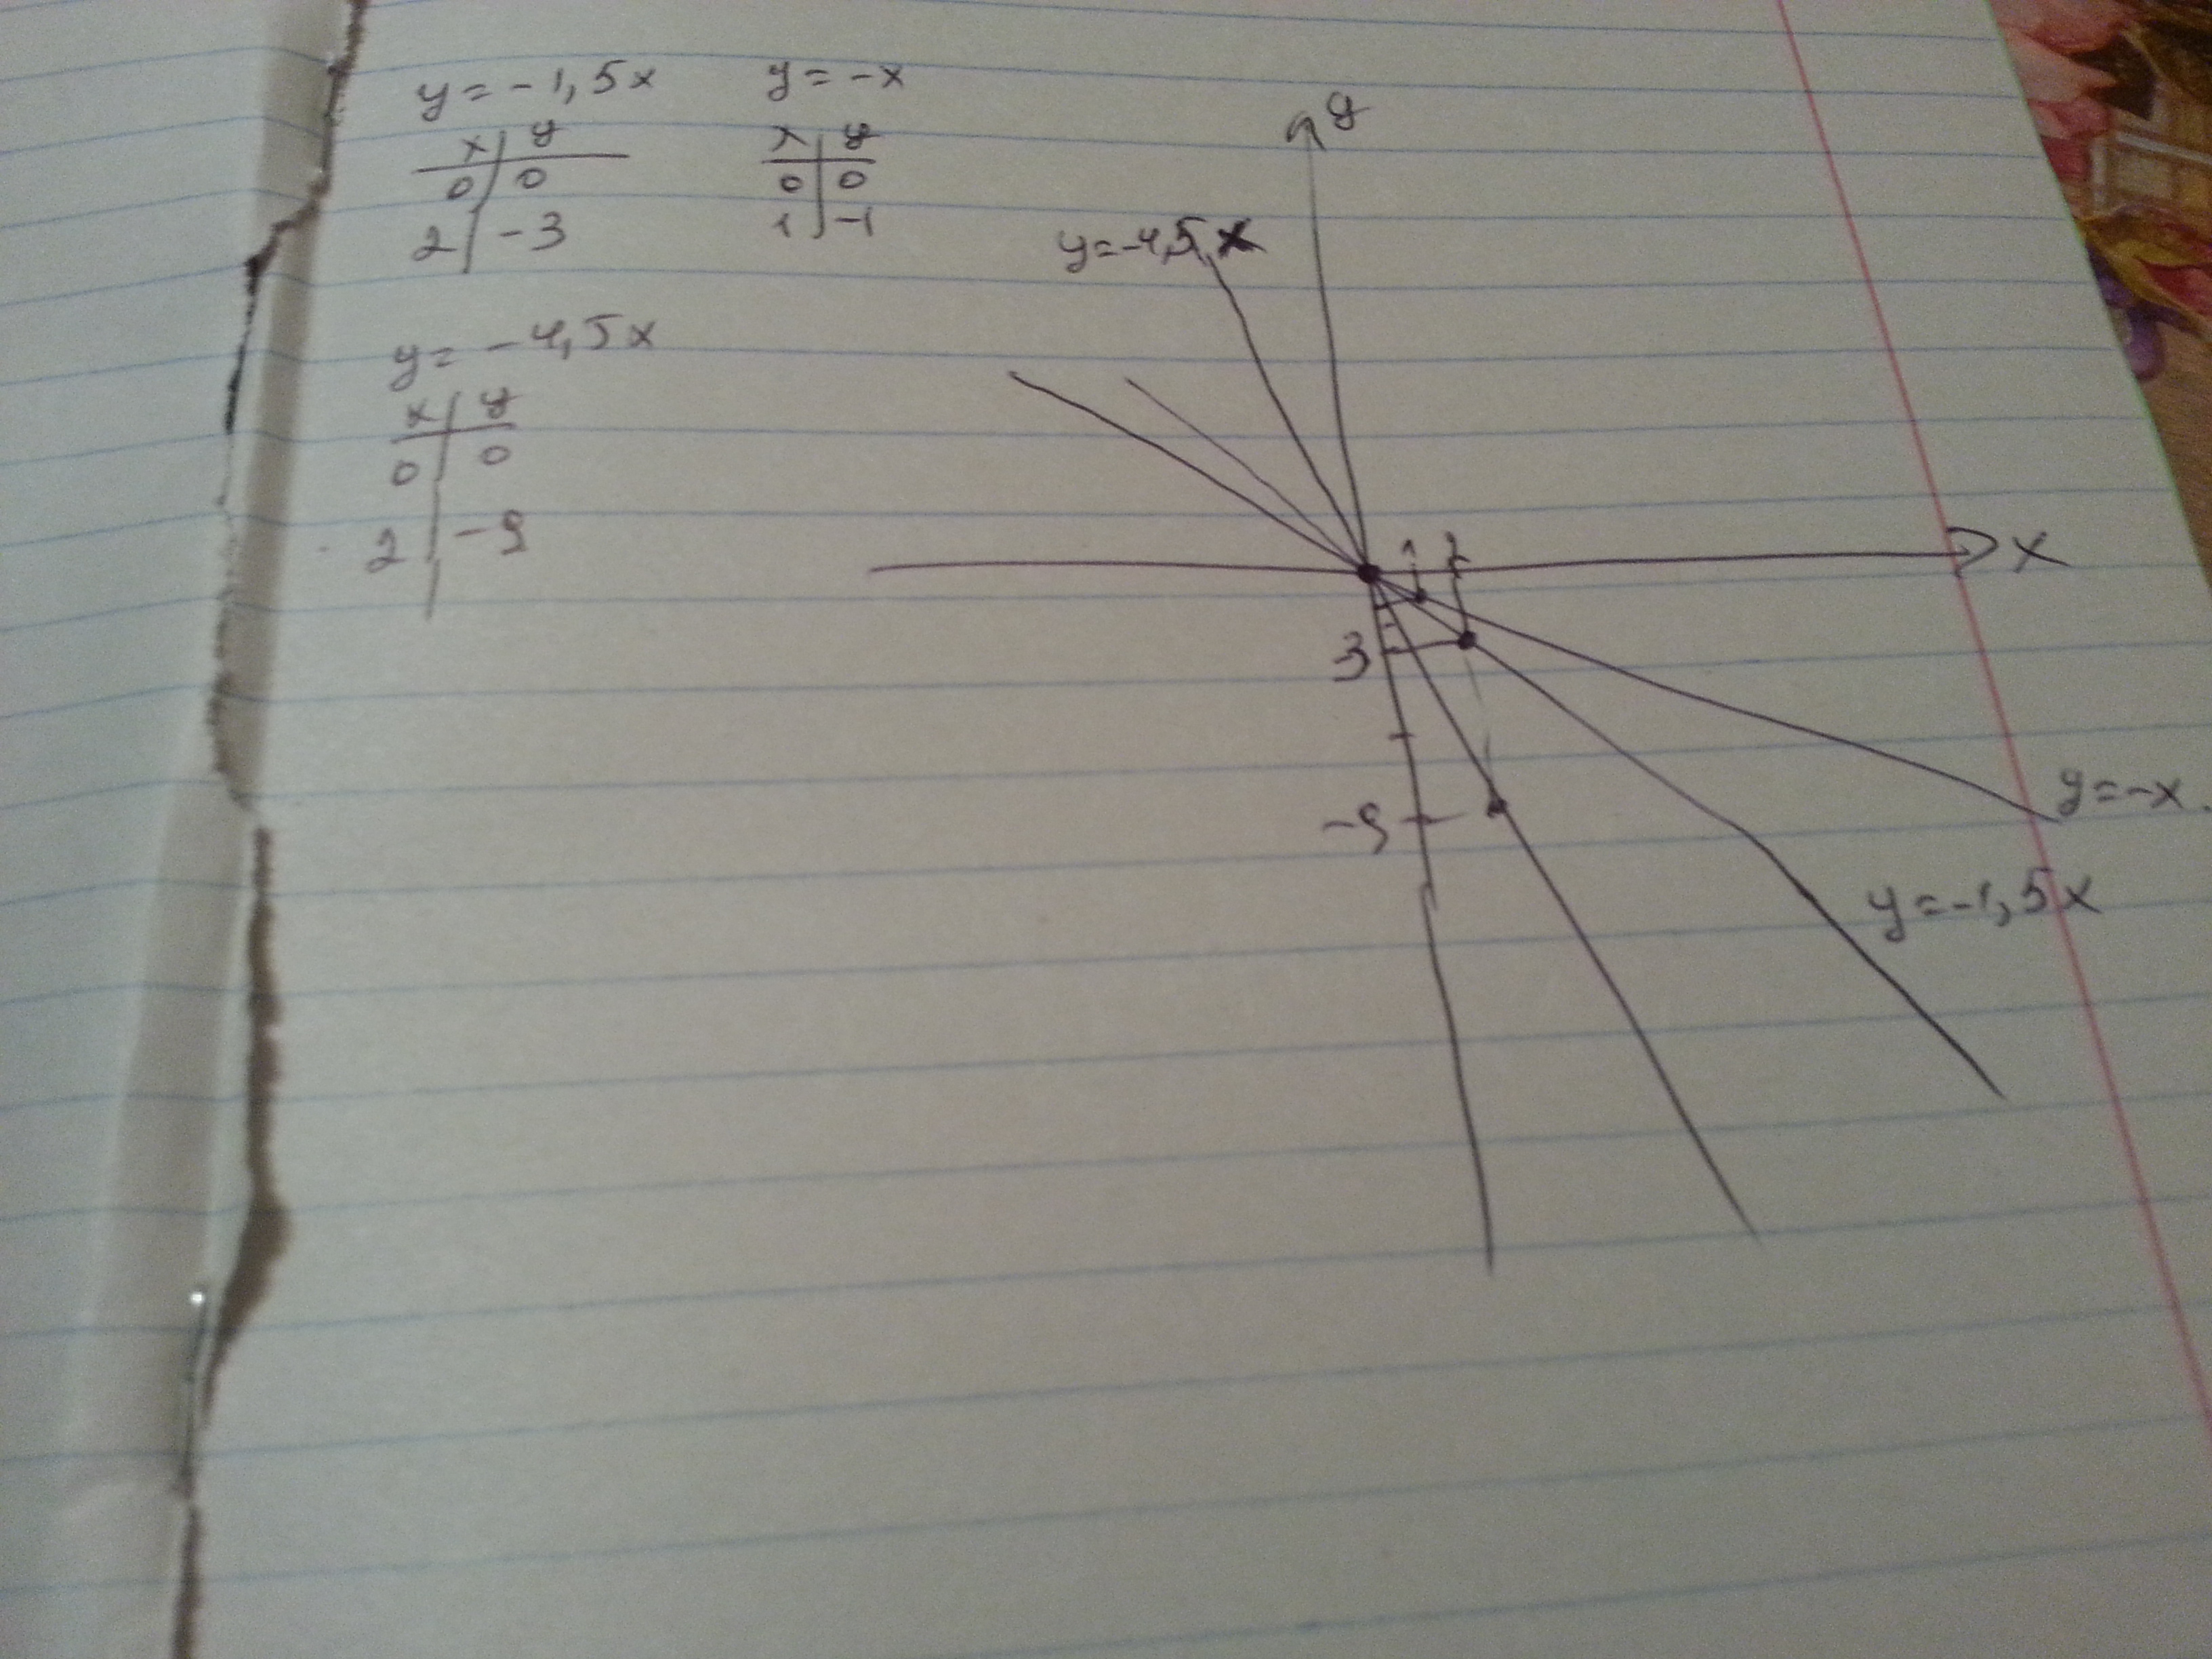 y = -1,5x
x y
0 0
2 -3
y = -x
x y
0 0
1 -1
y = -4,5x
x y
0 0
2 -9
y
y=-4,5x
x
1 2
3
-9
y=-x
y=-1,5x